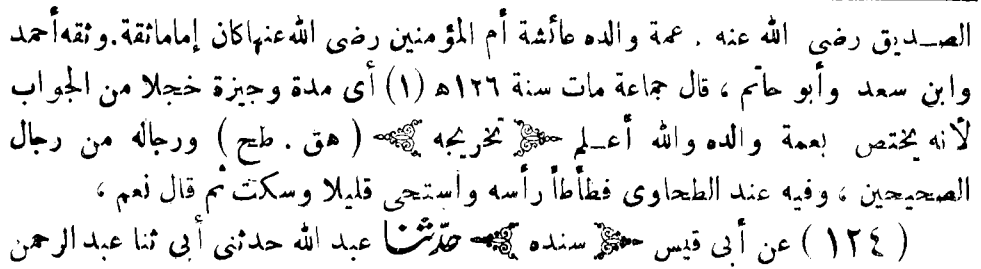 الصديق رضى الله عنه . عمة والده عائشة أم المؤمنين رضى الله عنها كان إماما ثقة . وثقه أحمد
وابن سعد وأبو حاتم ، قال جماعة مات سنة ١٢٦ه (١) أى مدة وجيزة خجلا من الجواب
لأنه يختص بعمة والده والله أعلم ﴿ تخريجه ﴾ ( هق . طح ) ورجاله من رجال
الصحيحين ، وفيه عند الطحاوى فطأطأ رأسه واستحى قليلا وسكت ثم قال نعم ،
( ١٢٤ ) عن أبى قيس ﴿ سنده ﴾ حدثنا عبد الله حدثنى أبى ثنا عبد الرحمن